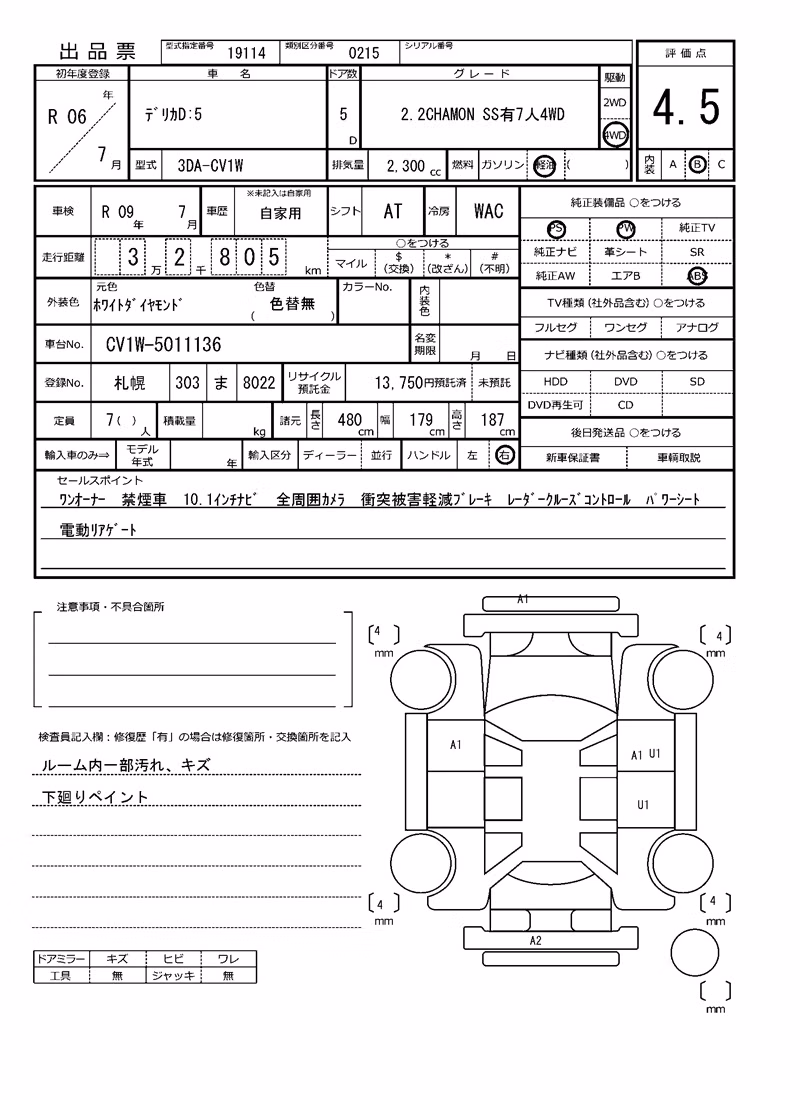 出品票 型式指定番号 19114 類別区分番号 0215 シリアル番号
評価点
4.5
内装 A B C
初年度登録 車名 ドア数 グレード 駆動
R 06 年 7 月 デリカD:5 5 D 2.2CHAMON SS有7人4WD 2WD 4WD
型式 3DA-CV1W 排気量 2,300 cc 燃料 ガソリン 軽油 ( )
車検 R 09 年 7 月 車歴 ※未記入は自家用 自家用 シフト AT 冷房 WAC
走行距離 3 万 2 千 8 0 5 km ○をつける マイル $ (交換) * (改ざん) # (不明)
外装色 元色 ホワイトダイヤモンド 色替 ( 色替無 ) カラーNo. 内装色
車台No. CV1W-5011136 名変期限 月 日
登録No. 札幌 303 ま 8022 リサイクル預託金 13,750円預託済 未預託
定員 7 ( ) 人 積載量 kg 諸元 長さ 480 cm 幅 179 cm 高さ 187 cm
輸入車のみ⇒ モデル年式 年 輸入区分 ディーラー 並行 ハンドル 左 右
純正装備品 ○をつける
PS PW 純正TV
純正ナビ 革シート SR
純正AW エアB ABS
TV種類(社外品含む)○をつける
フルセグ ワンセグ アナログ
ナビ種類(社外品含む)○をつける
HDD DVD SD
DVD再生可 CD
後日発送品 ○をつける
新車保証書 車輌取説
セールスポイント
ワンオーナー 禁煙車 10.1インチナビ 全周囲カメラ 衝突被害軽減ブレーキ レーダークルーズコントロール パワーシート
電動リアゲート
注意事項・不具合箇所
検査員記入欄:修復歴「有」の場合は修復箇所・交換箇所を記入
ルーム内一部汚れ、キズ
下廻りペイント
ドアミラー キズ ヒビ ワレ
工具 無 ジャッキ 無
A1
[4] mm
[4] mm
A1
A1 U1
U1
[4] mm
[4] mm
A2
[ ] mm